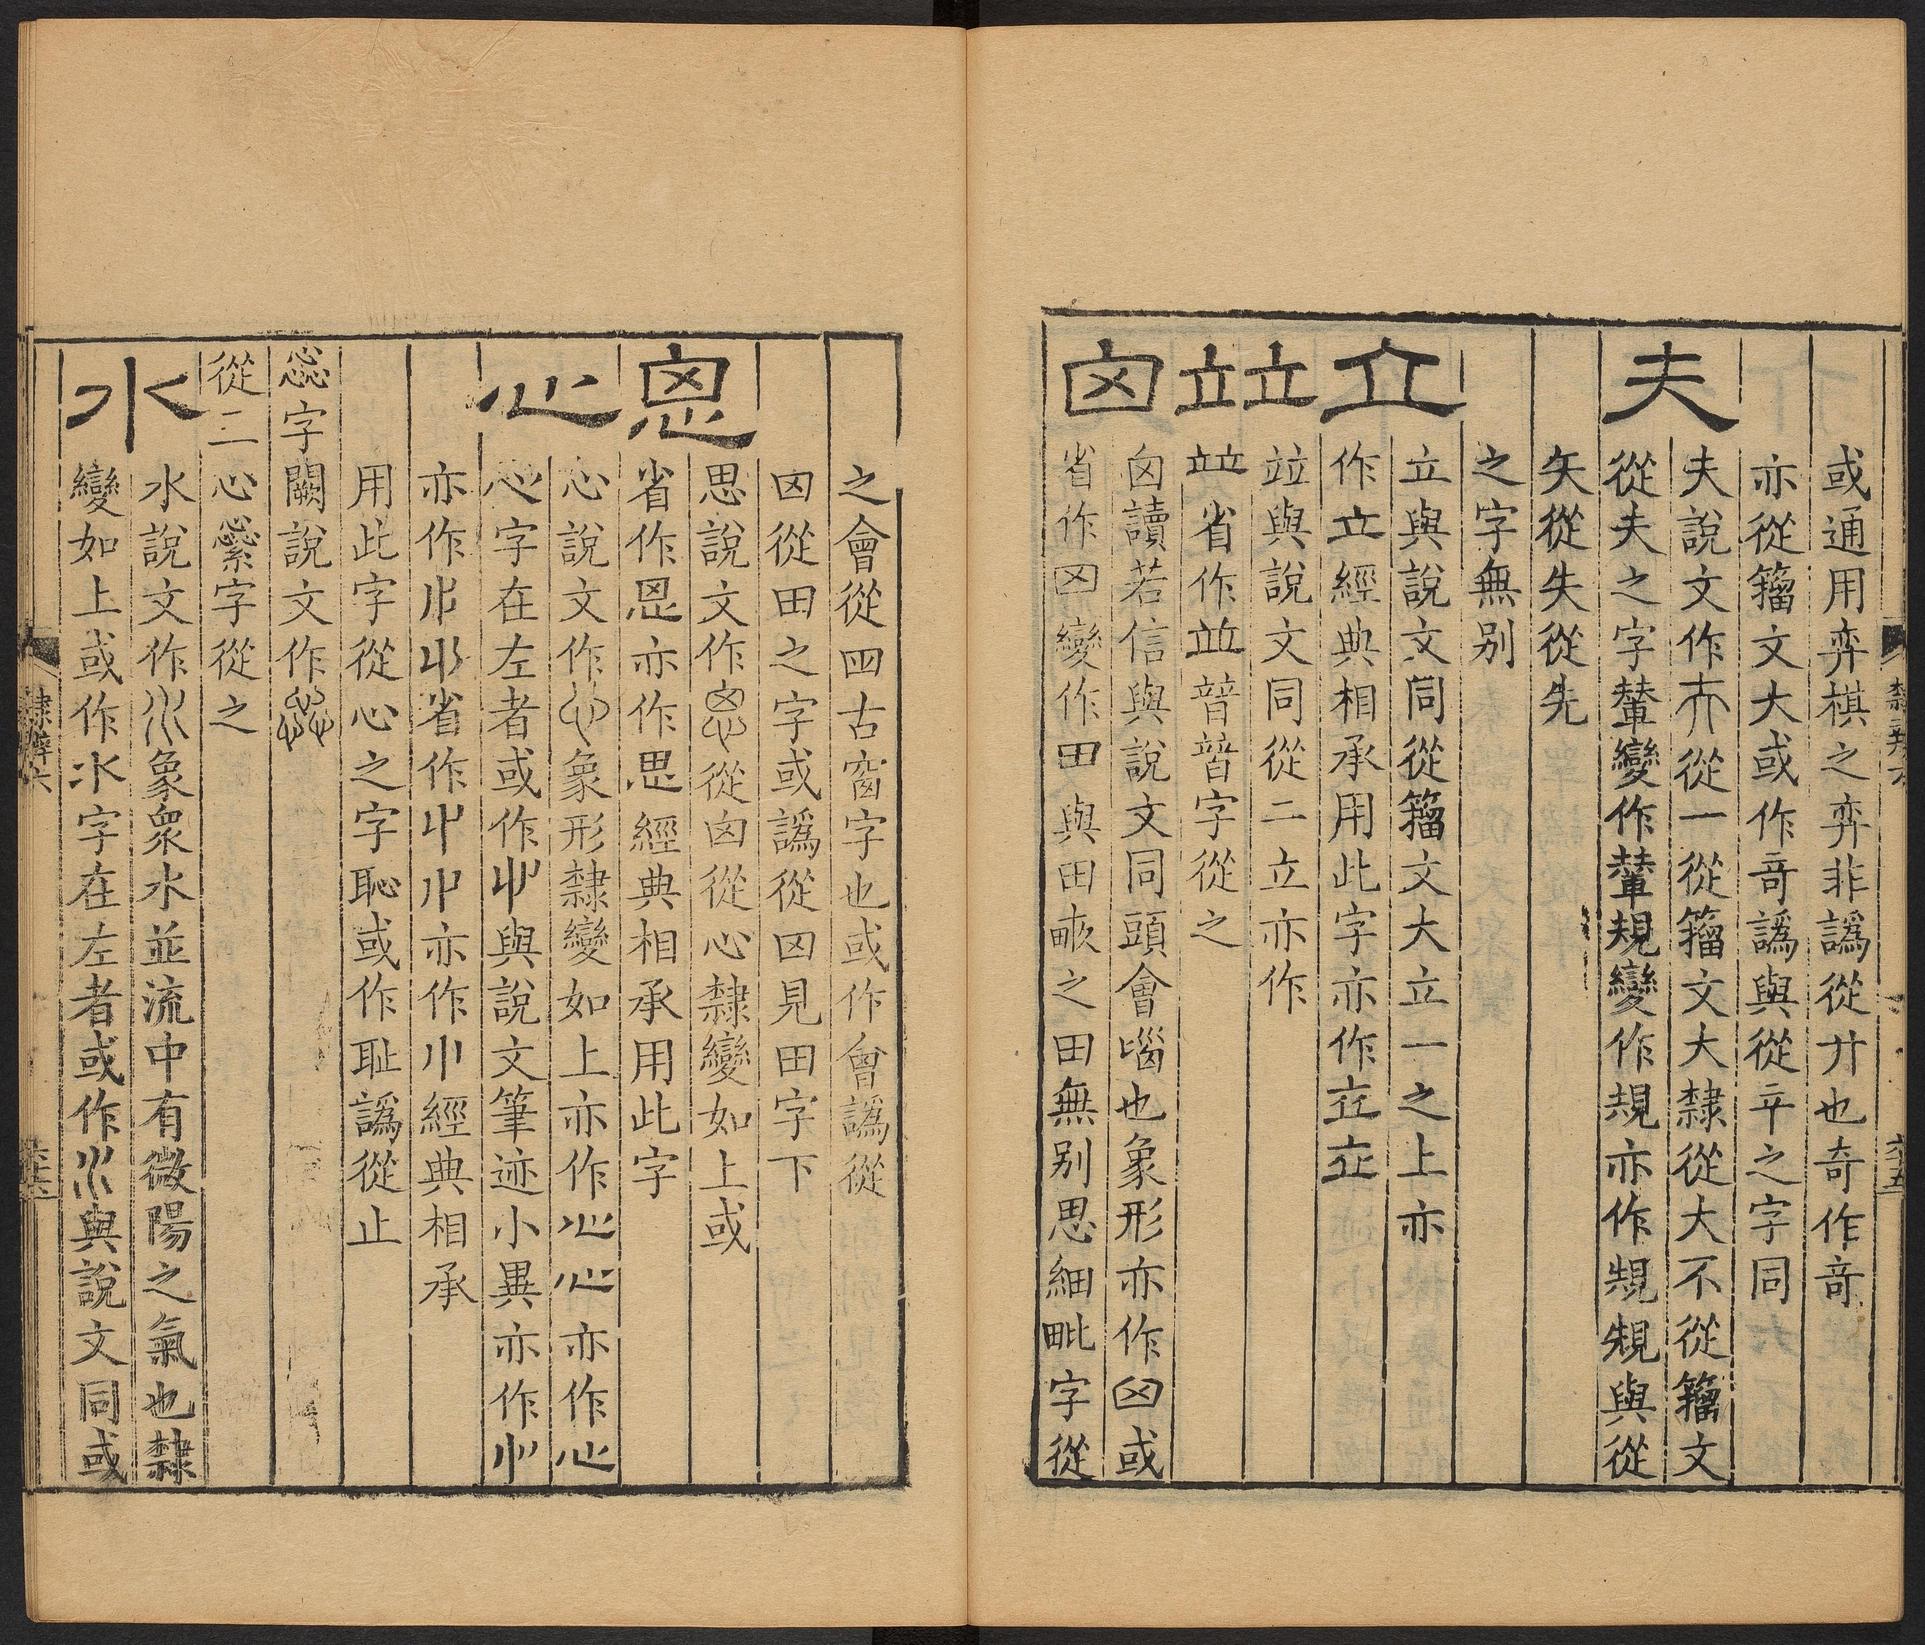 或通用弈棋之弈非譌從廾也奇作竒
亦從籀文大或作竒譌與從平之字同
夫
夫說文作从一從籀文大隸從大不從籀文
從夫之字輦變作輦規變作規亦作規規與從
矢從失從先
之字無別
立
立與說文同從籀文大立一之上亦
作立經典相承用此字亦作立立
竝
竝與說文同從二立亦作
竝省作並暜暜字從之
囟
囟讀若信與說文同頭會𡿺也象形亦作囟或
省作囟變作田與田畝之田無別思細毗字從
隸辨六
六五
之會從四古窗字也或作會譌從
囟從田之字或譌從囟見田字下
恖
思說文作從囟從心隸變如上或
省作恩亦作思經典相承用此字
心
心說文作象形隸變如上亦作心心亦作心
心字在左者或作與說文筆迹小異亦作
亦作省作亦作經典相承
用此字從心之字恥或作耻譌從止
惢字闕說文作
從二心惢繠字從之
水
水說文作象衆水並流中有微陽之氣也隸
變如上或作水字在左者或作與說文同或
隸辨六
六六